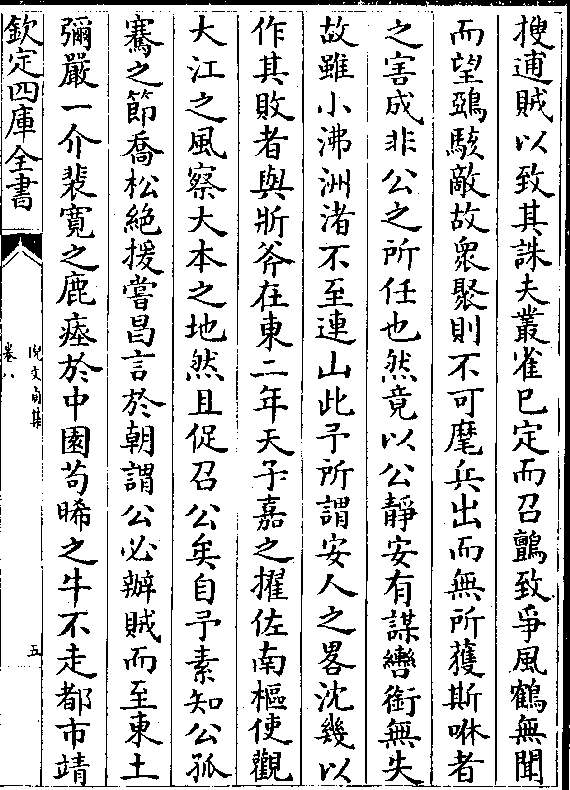 搜逋賊以致其誅夫叢雀已定而召鸇致爭風鶴無聞
而望鵶駭敵故衆聚則不可麾兵出而無所獲斯咻者
之害成非公之所任也然竟以公靜安有謀轡銜無失
故雖小沸洲渚不至連山此予所謂安人之畧沈幾以
作其敗者與斨斧在東二年天子嘉之擢佐南樞使觀
大江之風察大本之地然且促召公矣自予素知公孤
騫之節喬松絶援嘗昌言於朝謂公必辦賊而至東土
彌嚴一介裴寛之鹿瘞於中園茍晞之牛不走都市靖
欽定四庫全書
倪文貞集
卷八
五